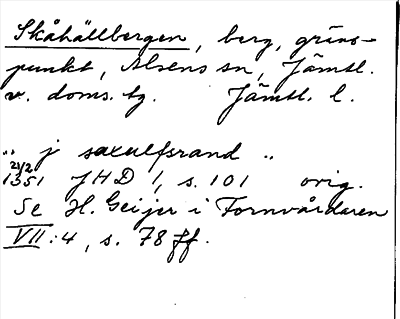 Skåhällbergen, berg, gräns-
punkt, Alsens sn, Jämtl.
v. doms. tg. Jämtl. l.
„ j saxulfsrand „
21/2
1351 JHD 1, s. 101 orig.
Se H. Geijer i Fornvårdaren
VII:4, s. 78 ff.